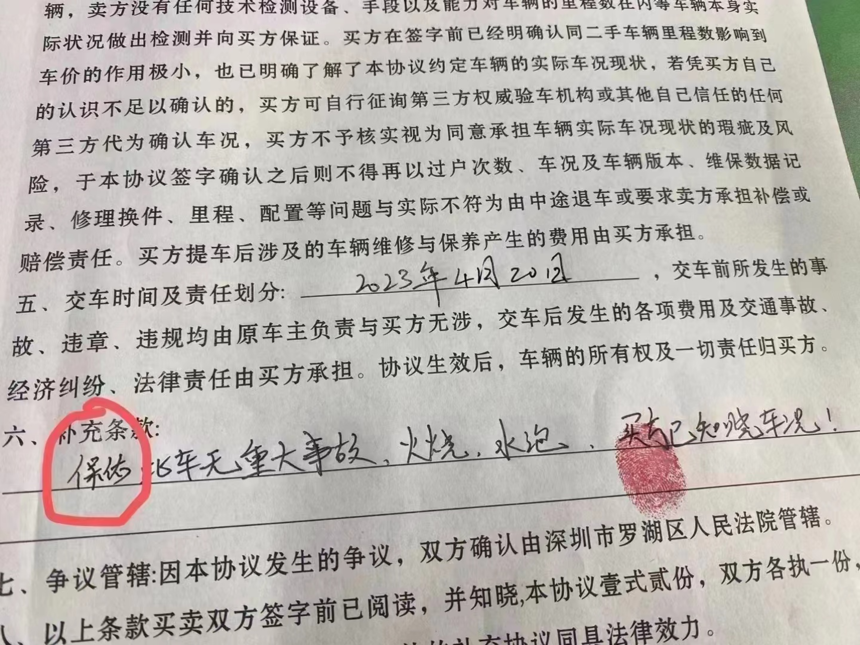 辆，卖方没有任何技术检测设备、手段以及能力对车辆的里程数在内等车辆本身实
际状况做出检测并向买方保证。买方在签字前已经明确认同二手车辆里程数影响到
车价的作用极小，也已明确了解了本协议约定车辆的实际车况现状，若凭买方自己
的认识不足以确认的，买方可自行征询第三方权威验车机构或其他自己信任的任何
第三方代为确认车况，买方不予核实视为同意承担车辆实际车况现状的瑕疵及风
险，于本协议签字确认之后则不得再以过户次数、车况及车辆版本、维保数据记
录、修理换件、里程、配置等问题与实际不符为由中途退车或要求卖方承担补偿或
赔偿责任。买方提车后涉及的车辆维修与保养产生的费用由买方承担。
五、交车时间及责任划分: 2023年4月20日 ，交车前所发生的事
故、违章、违规均由原车主负责与买方无涉，交车后发生的各项费用及交通事故、
经济纠纷、法律责任由买方承担。协议生效后，车辆的所有权及一切责任归买方。
六、补充条款:
保佑此车无重大事故、火烧、水泡、买方已知晓车况！
七、争议管辖:因本协议发生的争议，双方确认由深圳市罗湖区人民法院管辖。
八、以上条款买卖双方签字前已阅读，并知晓,本协议壹式贰份，双方各执一份，
的补充协议同具法律效力。